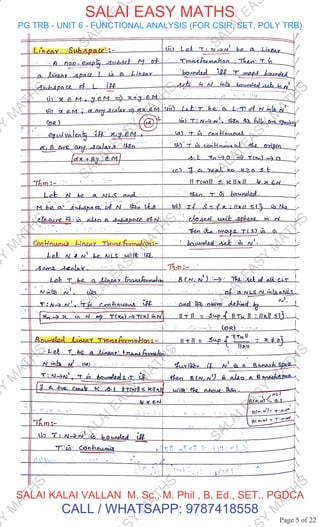 SALAI EASY MATHS
PG TRB - UNIT 6 - FUNCTIONAL ANALYSIS (FOR CSIR, SET, POLY TRB)
Linear Subspace :-
A non-empty subset M of
a linear space L is a Linear
Subspace of L iff
(i) x ∈ M, y ∈ M ⇒ x+y ∈ M
(ii) x ∈ M, α any scalar ⇒ αx ∈ M
(OR)
equivalently iff x, y ∈ M
α, β are any scalars then
αx+βy ∈ M
Thm:-
Let N be a NLS and
M be a subspace of N then its
closure is also a subspace of N.
Continuous Linear Transformation:-
Let N & N' be NLS with the
same scalar.
Let T be a linear transformation
N into N'.
T: N→N', T is continuous iff
xn → x in N ⇒ T(xn) → T(x) in N'
Bounded Linear Transformation:-
Let T be a linear transformation
N into N'
T: N→N', T is bounded L.T if
∃ a +ve const K s.t ||T(x)|| ≤ K||x||
∀ x ∈ N
Thm:-
(i) T: N→N' is bounded iff
T is Continuous
(ii) Let T: N→N' be a Linear
Transformation. Then T is
bounded iff T maps bounded
sets in N into bounded sets in N'
(iii) Let T be a L.T of N into N'
T: N→N'
(a) T is continuous
(b) T is continuous at the origin
s.t xn→0 ⇒ T(xn)→0
(c) ∃ a real no. K≥0 s.t
||T(x)|| ≤ K||x|| ∀ x ∈ N
(d) If S = {x : ||x|| ≤ 1} is the
closed unit sphere in N
then its image T(S) is a
bounded set in N'.
Thm:-
B(N, N') → The set of all CLT
of a NLS N into NLS N'
and its norm defined by
||T|| = Sup { ||Tx|| : ||x|| ≤ 1}
(OR)
||T|| = Sup { ||Tx|| / ||x|| : x ≠ 0}
Further if N' is a Banach space
then B(N, N') is also a Banach space
with the above norm.
SALAI KALAI VALLAN M. Sc., M. Phil , B. Ed., SET., PGDCA
CALL / WHATSAPP: 9787418558
Page 5 of 22